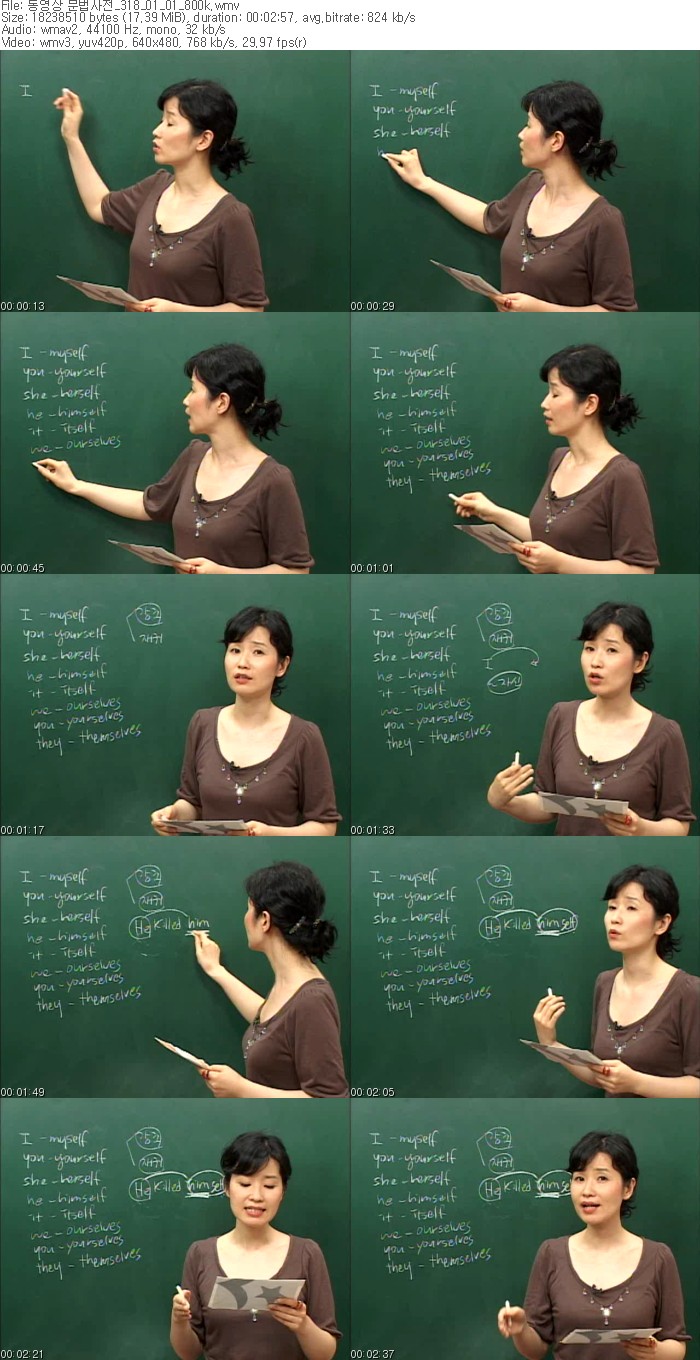 File: 동영상 문법사전_318_01_01_800k.wmv
Size: 18238510 bytes (17,39 MiB), duration: 00:02:57, avg.bitrate: 824 kb/s
Audio: wmav2, 44100 Hz, mono, 32 kb/s
Video: wmv3, yuv420p, 640x480, 768 kb/s, 29,97 fps(r)
I
00:00:13
I - myself
you - yourself
she - herself
h
00:00:29
I - myself
you - yourself
she - herself
he - himself
it - itself
we - ourselves
00:00:45
I - myself
you - yourself
she - herself
he - himself
it - itself
we - ourselves
you - yourselves
they - themselves
00:01:01
I - myself
you - yourself
she - herself
he - himself
it - itself
we - ourselves
you - yourselves
they - themselves
강조
재귀
00:01:17
I - myself
you - yourself
she - herself
he - himself
it - itself
we - ourselves
you - yourselves
they - themselves
강조
재귀
I
~자신
00:01:33
I - myself
you - yourself
she - herself
he - himself
it - itself
we - ourselves
you - yourselves
they - themselves
강조
재귀
He killed him
00:01:49
I - myself
you - yourself
she - herself
he - himself
it - itself
we - ourselves
you - yourselves
they - themselves
강조
재귀
He killed himself
00:02:05
I - myself
you - yourself
she - herself
he - himself
it - itself
we - ourselves
you - yourselves
they - themselves
강조
재귀
He killed himsel
00:02:21
I - myself
you - yourself
she - herself
he - himself
it - itself
we - ourselves
you - yourselves
they - themselves
강조
재귀
He killed himse
00:02:37